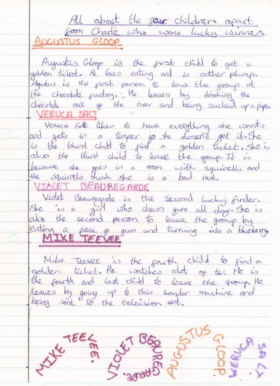 All about the four children apart
from Charlie who were lucky winners
AUGUSTUS GLOOP
Augustus Gloop is the first child to get a
golden ticket. He loves eating and is rather plump.
Agustus is the first person to leave the group of
the chocolate factory. He leaves by drinking the
chocolate out of the river and being sucked up a pipe.
VERUCA SALT
Veruca Salt likes to have everything she wants
and gets in a temper if she doesnt get it. She
is the third child to find a golden ticket. She is
also the third child to leave the group. It is
because she goes in a room with squirrels and
the squirrels think she is a bad nut.
VIOLET BEAUREGARDE
Violet Beauregarde is the second lucky finder.
She is a girl who chews gum all day. She is
also the second person to leave the group by
a piece of gum and turning into a blueberry
MIKE TEEVEE
Mike Teevee is the fourth child to find a
golden ticket. He watches alot of tv. He is
the fourth and last child to leave the group. He
leaves by going up to their machine and
being sent to the television set.
MIKE TEEVEE.
VIOLET BEAUREGARDE.
AUGUSTUS GLOOP
VERUCA SALT.